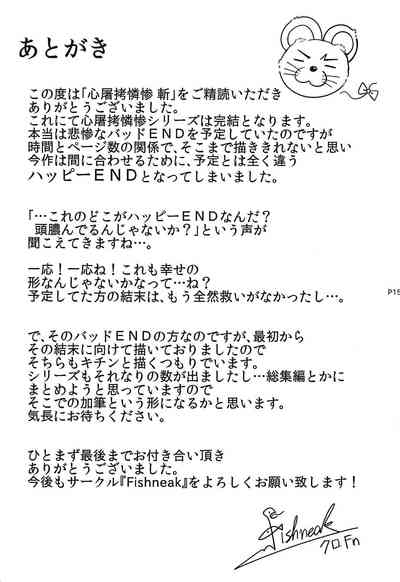 あとがき
この度は「心屠拷憐惨 斬」をご精読いただき
ありがとうございました。
これにて心屠拷憐惨シリーズは完結となります。
本当は悲惨なバッドENDを予定していたのですが
時間とページ数の関係で、そこまで描ききれないと思い
今作は間に合わせるために、予定とは全く違う
ハッピーENDとなってしまいました。
「…これのどこがハッピーENDなんだ?
頭膿んでるんじゃないか?」という声が
聞こえてきますね…。
一応!一応ね!これも幸せの
形なんじゃないかなって…ね?
予定してた方の結末は、もう全然救いがなかったし…。
P19
で、そのバッドENDの方なのですが、最初から
その結末に向けて描いておりましたので
そちらもキチンと描くつもりでいます。
シリーズもそれなりの数が出ましたし…総集編とかに
まとめようと思っていますので
そこでの加筆という形になるかと思います。
気長にお待ちください。
ひとまず最後までお付き合い頂き
ありがとうございました。
今後もサークル『Fishneak』をよろしくお願い致します!
Fishneak
クロFn